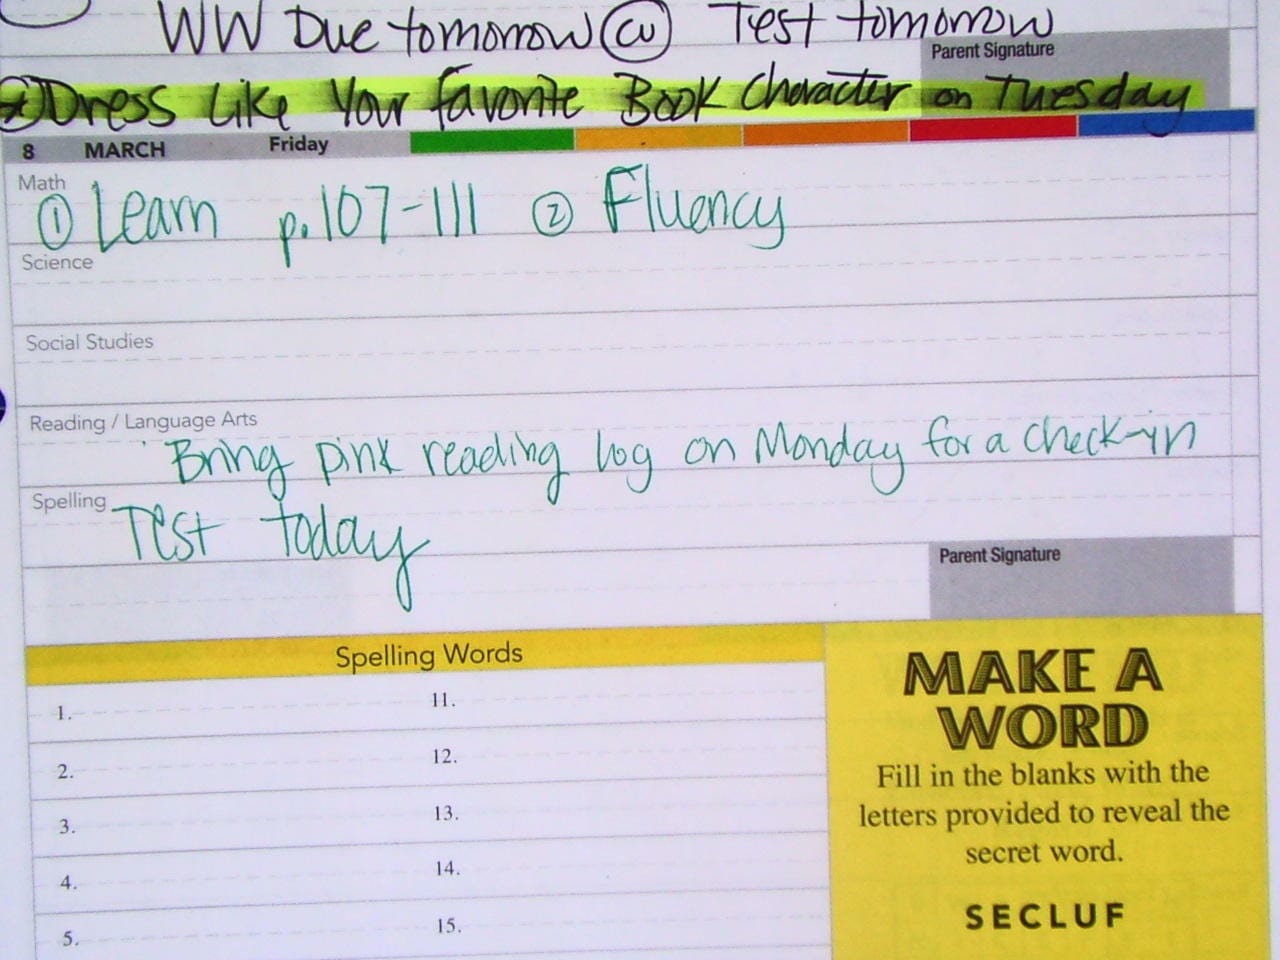 WW Due tomorrow CW Test tomorrow
Parent Signature
Dress Like Your favorite Book Character on Tuesday
8 MARCH Friday
Math
① Learn p.107-111 ② Fluency
Science
Social Studies
Reading / Language Arts
Bring pink reading log on Monday for a check-in
Spelling
Test today
Parent Signature
Spelling Words
1. 11.
2. 12.
3. 13.
4. 14.
5. 15.
MAKE A
WORD
Fill in the blanks with the
letters provided to reveal the
secret word.
SECLUF